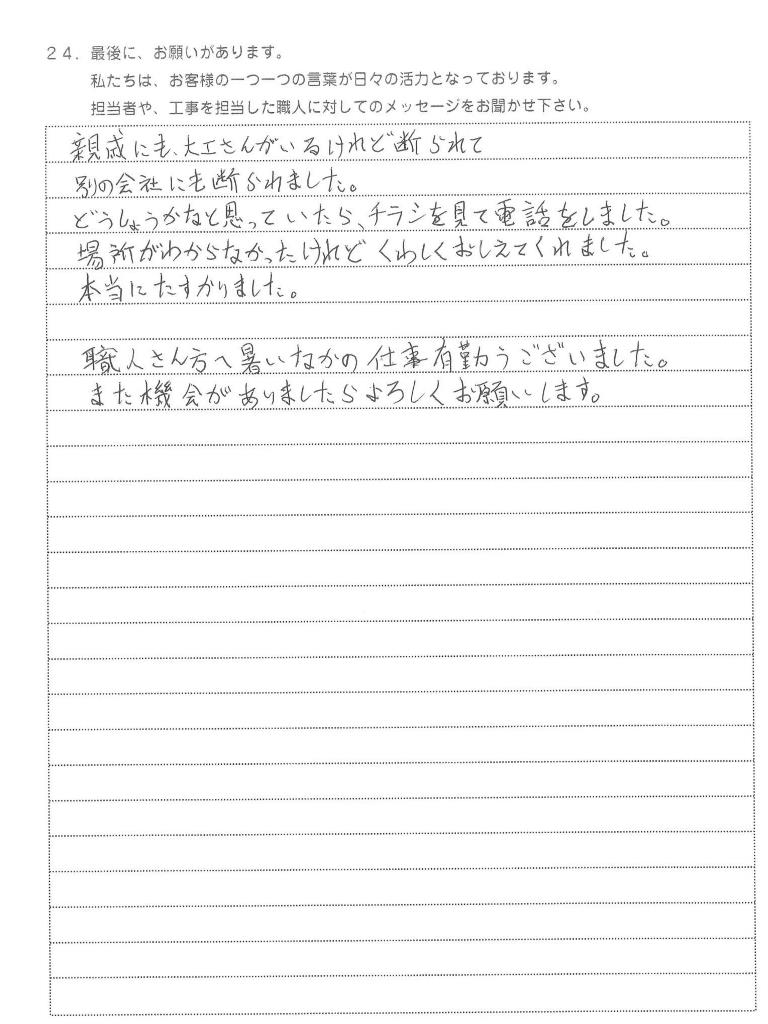 24. 最後に、お願いがあります。
私たちは、お客様の一つ一つの言葉が日々の活力となっております。
担当者や、工事を担当した職人に対してのメッセージをお聞かせ下さい。
親戚にも、大工さんがいるけれど断られて
別の会社にも断られました。
どうしょうかなと思っていたら、チラシを見て電話をしました。
場所がわからなかったけれど くわしくおしえてくれました。
本当にたすかりました。
職人さん方へ暑いなかの仕事有勤うございました。
また機会がありましたらよろしくお願いします。